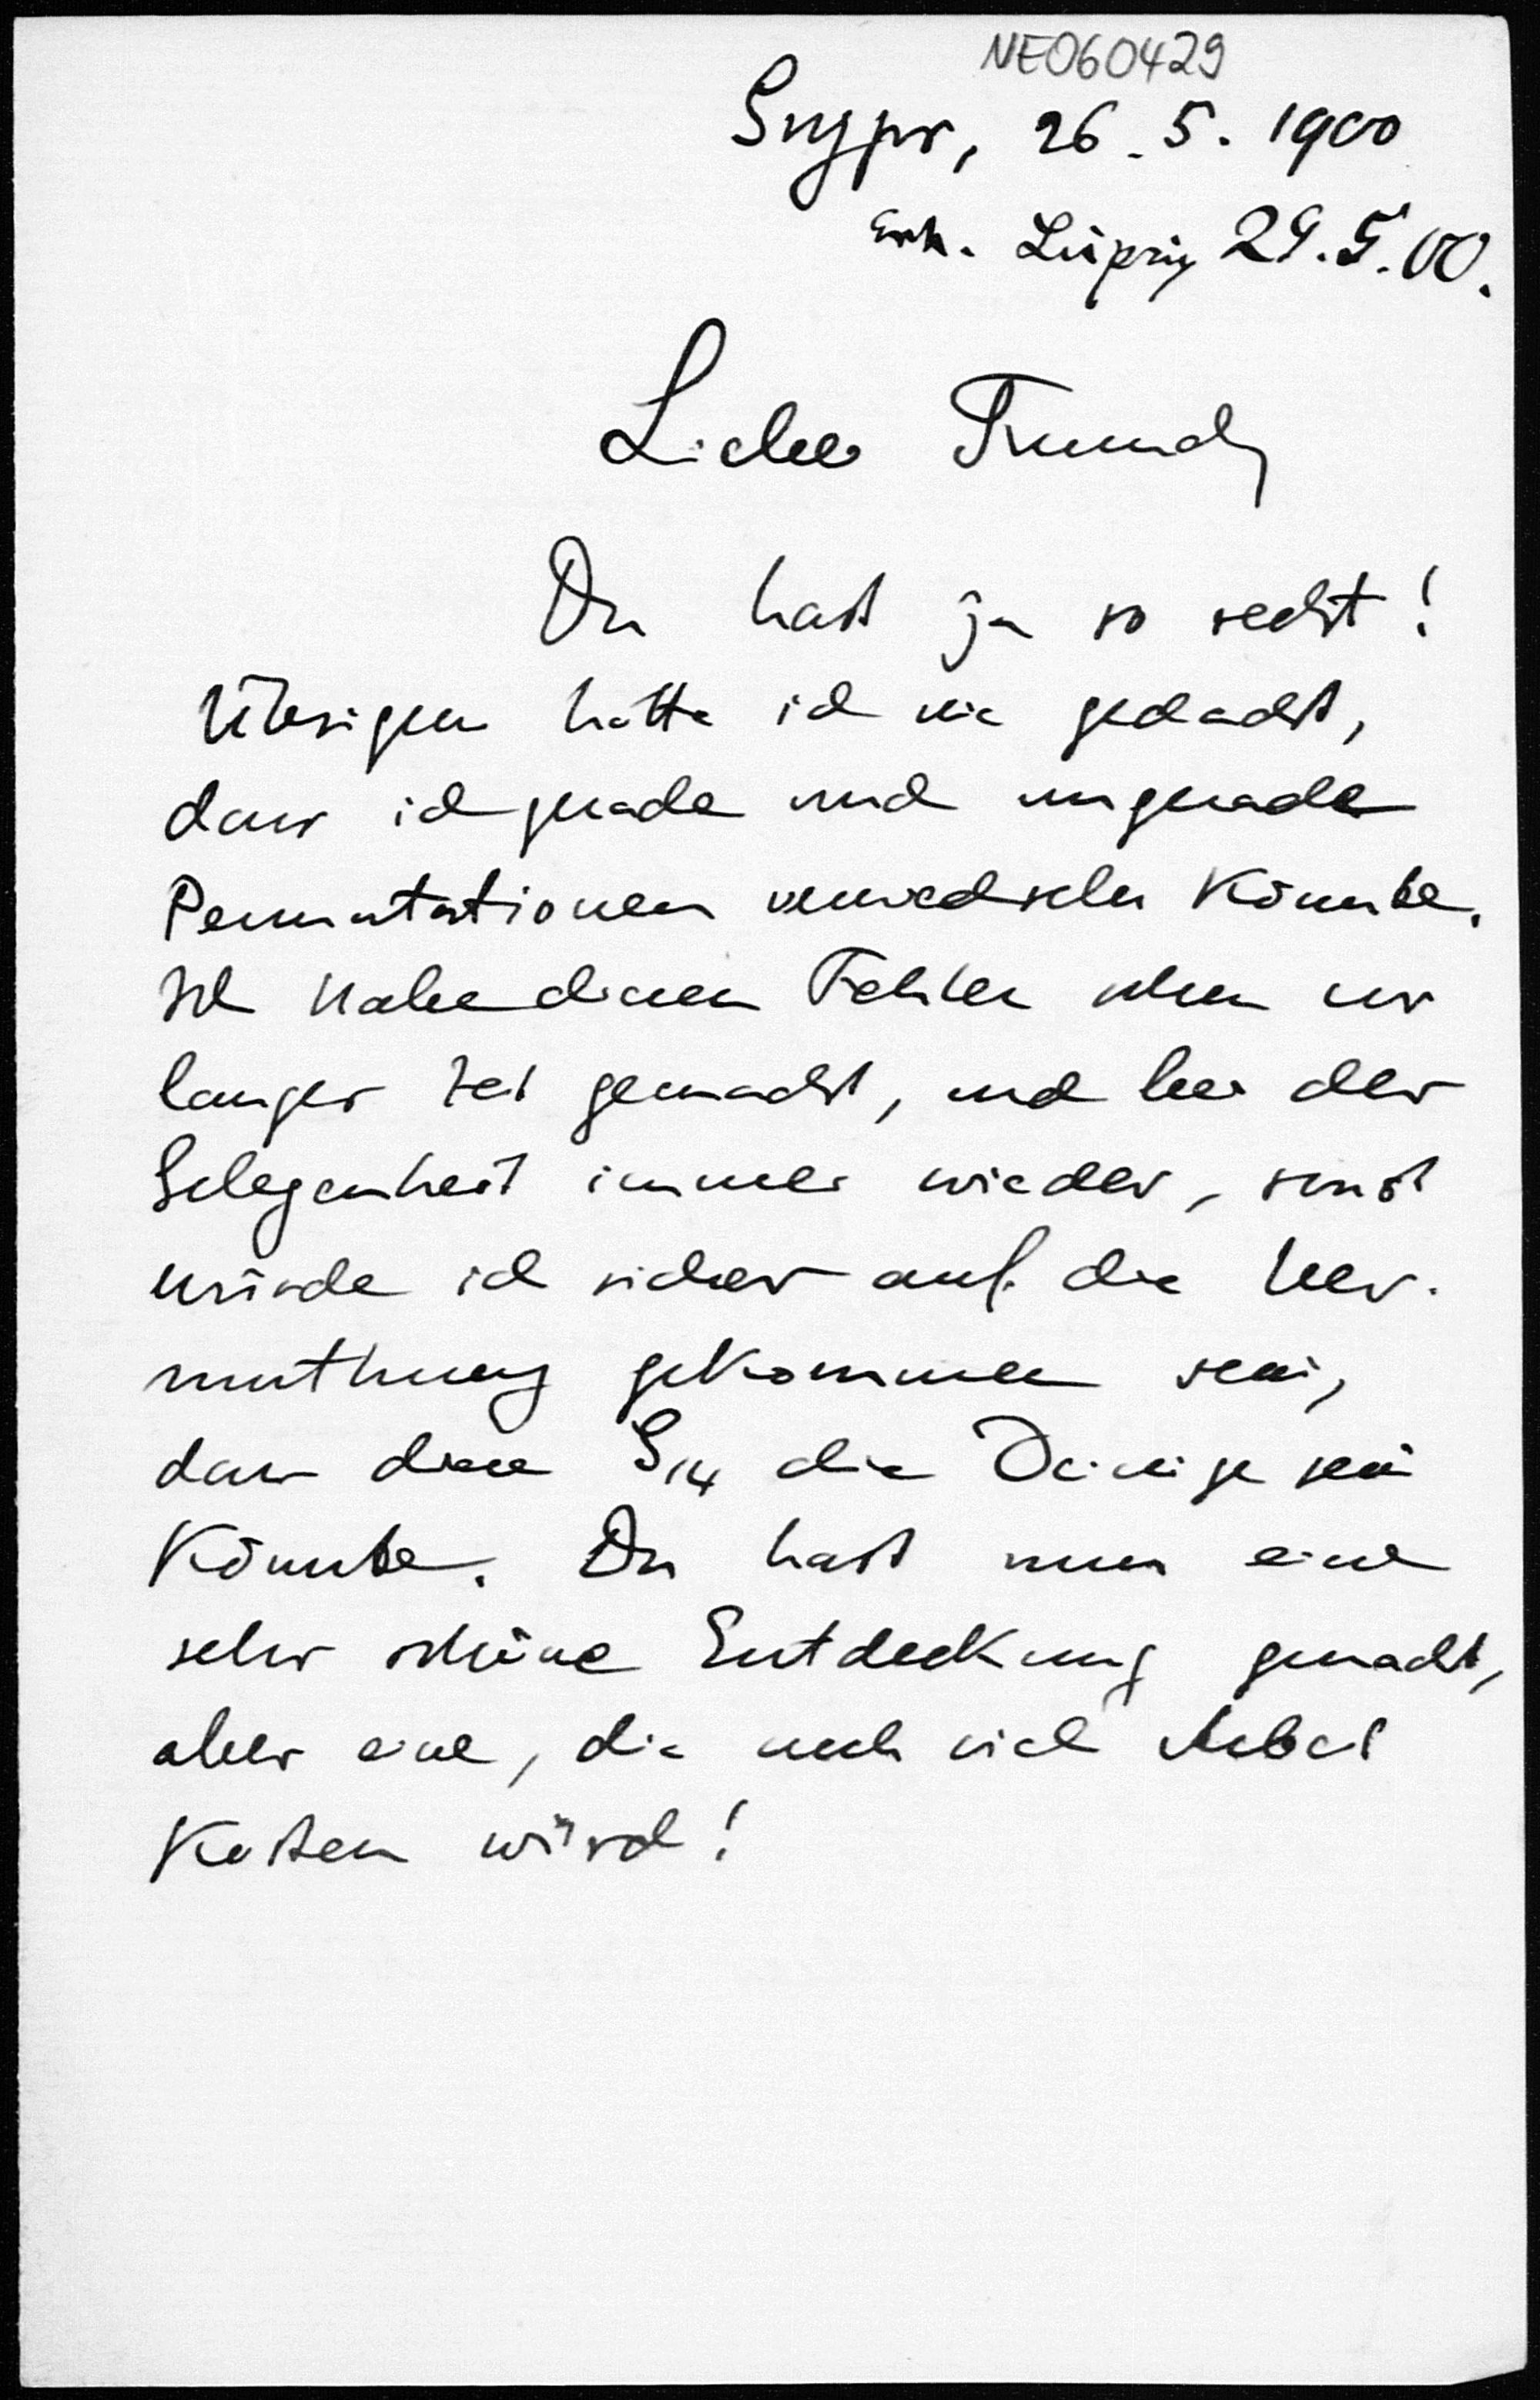 NE060429
26.5.1900
Erh. Leipzig 29.5.00.
Lieber Freund
Du hast ja so recht!
Übrigen hätte ich nie gedacht,
dass ich gerade und ungerade
Permutationen verwechseln könnte.
Ich habe diesen Fehler schon vor
langer Zeit gemacht, und bei der
Gelegenheit immer wieder, sonst
würde ich sicher auf die Ver-
muthung gekommen sein,
dass diese G14 die Deinige sein
könnte. Du hast nun eine
sehr schöne Entdeckung gemacht,
aber eine, die noch viel Arbeit
kosten würd!